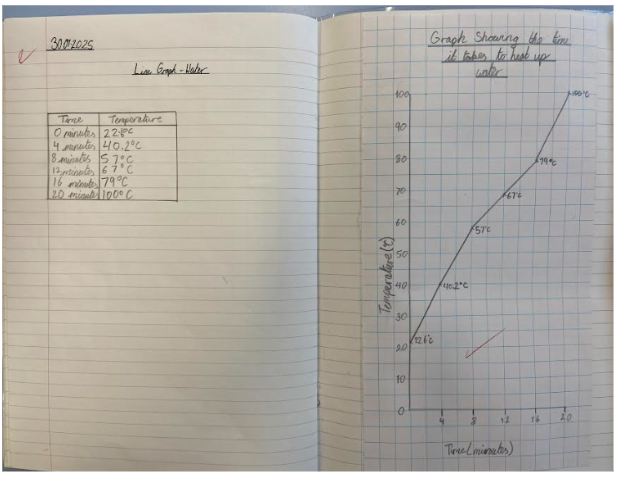 30.01.2025
Line Graph - Water
Time Temperature
0 minutes 22.6°C
4 minutes 40.2°C
8 minutes 57°C
12 minutes 67°C
16 minutes 79°C
20 minutes 100°C
Graph Showing the time
it takes to heat up
water
100
90
80
70
60
50
40
30
20
10
0
Temperature (°C)
22.6°C
40.2°C
57°C
67°C
79°C
100°C
4 8 12 16 20
Time (minutes)